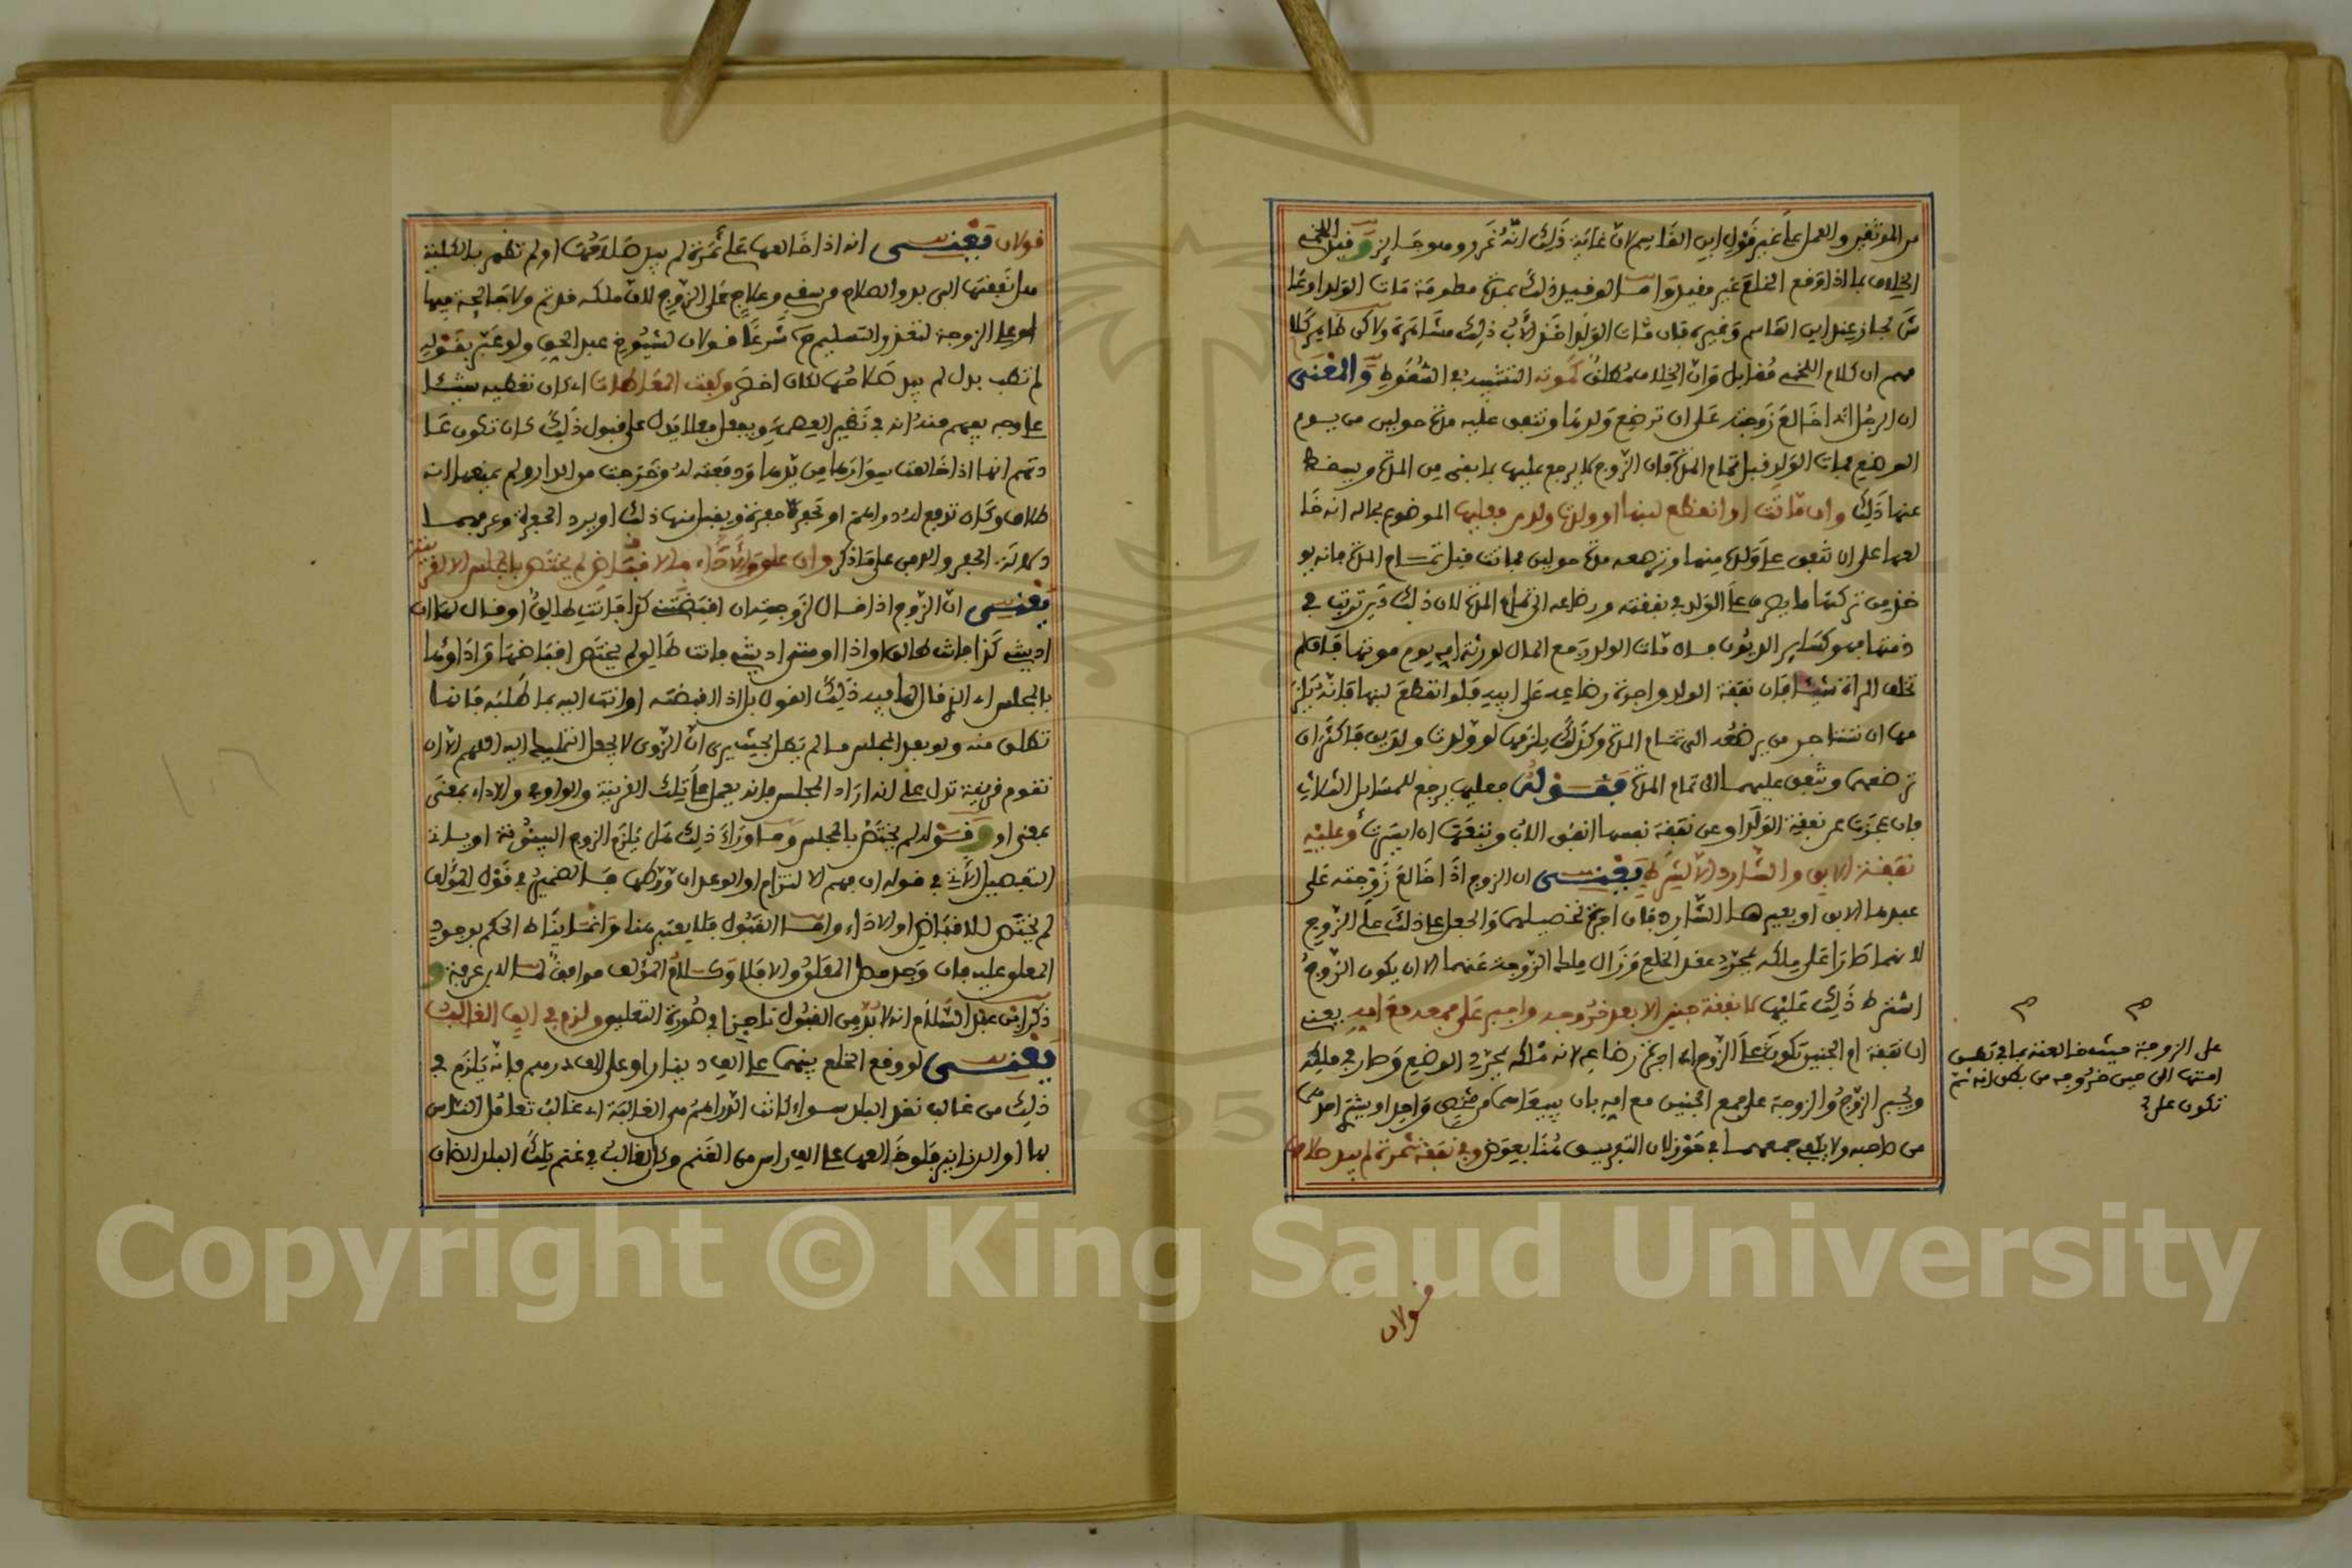 من الموثقين والعمل على غير قول ابن القاسم لان غاية ذلك انه غرر وهو جائز وقيل اللخمي
الخلاف بما اذا وقع الخلع غير مقيد واما لو قيد ذلك بمدة معلومة مات الولد او عا
ش لجاز عند ابن القاسم وغيره فان مات الولد اخذ الاب ذلك مشاهرة ولاكن ظاهر كلا
مهم ان كلام اللخمي مقابل وان الخلاف مطلق كمونه التشبيه في السقوط والمعنى
ان الرجل اذا خالع زوجته على ان ترضع ولدها وتنفق عليه مدة حولين من يوم
الوضع فمات الولد قبل تمام المدة فان الزوج لا يرجع عليها بما بقي من المدة ويسقط
عنها ذلك وان ماتت او انقطع لبنها او ولدت ولدين فعليها الموضوع بحاله انه خا
لعها على ان تنفق على ولده منها وترضعه مدة حولين فماتت قبل تمام المدة فانه يو
خذ من تركتها ما يصرف على الولد في نفقته ورضاعه الى تمام المدة لان ذلك دين ترتب في
ذمتها فهو كسائر الديون فان مات الولد رجع المال لورثة امه يوم موتها فان لم
تخلف المراة شيئا فان نفقة الولد واجرة رضاعه على ابيه فلو انقطع لبنها فانه يلز
مها ان تستاجر من يرضعه الى تمام المدة وكذلك يلزمها لو ولدت ولدين فاكثر ان
ترضعهما وتنفق عليهما الى تمام المدة فقوله فعليها يرجع للمسائل الثلاث
فان عجزت عن نفقة الولد او عن نفقة نفسها انفق الاب وتبعها ان ايسرت وعليه
نفقة الابق والشارد الا لشرط يعني ان الزوج اذا خالع زوجته على
عبدها الابق او بعيرها الشارد فان اجرة تحصيلهما والجعل على ذلك على الزوج
لانهما طرا على ملكه بمجرد عقد الخلع وزال ملك الزوجة عنهما الا ان يكون الزوج
اشترط ذلك عليها لا نفقة جنين الا بعد خروجه واجبر على جمعه مع امه يعني
ان نفقة ام الجنين تكون على الزوج اي اجرة رضاعه لانه ملكه بمجرد الوضع وصار في ملكه
ويجبر الزوج والزوجة على جمع الجنين مع امه بان يبيعاهما من شخص واحد او يشتري احدهما
من صاحبه ولا يكفي جمعهما في حوز لان التفريق هنا بعوض وفي نفقة ثمرة لم يبد صلاحها
على الزوجة حيث خالعته بما في بطن
امتها الى حين خروجه من بطن امه ثم
تكون على
قولان
قولان يعني انه اذا خالعها على ثمرة لم يبد صلاحها او لم تظهر بالكلية
هل نفقتها الى بدو الصلاح من سقي وعلاج على الزوج لان ملكه قد تم ولا جائحة فيها
او على الزوجة لتعذر التسليم ح شرعا قولان لشيوخ عبد الحق ولو عبر بقوله
لم تطب بدل لم يبد صلاحها لكان اخصر وكفت المعاطات اي كان تعطيه شيئا
على وجه يفهم منه انه في نظير العصمة ويفعل فعلا يدل على قبول ذلك كان تكون عا
دتهم انها اذا خالعت سوارها من يدها ودفعته له وخرجت من الدار ولم يمنعها انه
طلاق وكان تدفع له دراهم او تحفر حفرة ويقبل منها ذلك او يرد الحفرة وعرفهما
دلالة الحفر والدفن على ما ذكر وان علق بالاقباض او الاداء لم يختص بالمجلس الا لقرينة
يعني ان الزوج اذا قال لزوجته ان اقبضتني كذا فانت طالق او قال لها ان
اديت كذا فانت طالق او اذا او متى اديت فانت طالق لم يختص اقباضها واداؤها
بالمجلس اي الذي قال لها فيه ذلك القول بل اذا اقبضته او اتت اليه بما طلبه فانها
تطلق منه ولو بعد المجلس ما لم يطل بحيث يرى ان الزوج لا يجعل التمليك اليه اللهم الا ان
تقوم قرينة تدل على انه اراد المجلس فانه يعمل على تلك القرينة والواو في والاداء بمعنى
بمعنى او وقوله لم يختص بالمجلس وما وراء ذلك هل يلزم الزوج البينونة او يسلك
التفصيل الاتي في قوله ان فهم الالتزام او الوعد ان ورطها فالضمير في قول المؤلف
لم يختص للاقباض او الاداء واما القبول فلا يعتبر هنا وانما يناط الحكم بوجود
المعلق عليه فان وجد حصل المعلق والا فلا وكلام المؤلف موافق لما لابن عرفة و
ذكر ابن عبد السلام انه لا بد من القبول ناجزا في صورة التعليق ولزم في الف الغالب
يعني لو وقع الخلع بينهما على الف دينار او على الف درهم فانه يلزم في
ذلك من غالب نقد البلد سواء كانت الدراهم هي الغالبة اي غالب تعامل الناس
بها او الدنانير فلو خالعها على الف راس من الغنم وكان الغالب في غنم تلك البلد الضان
Copyright © King Saud University
195